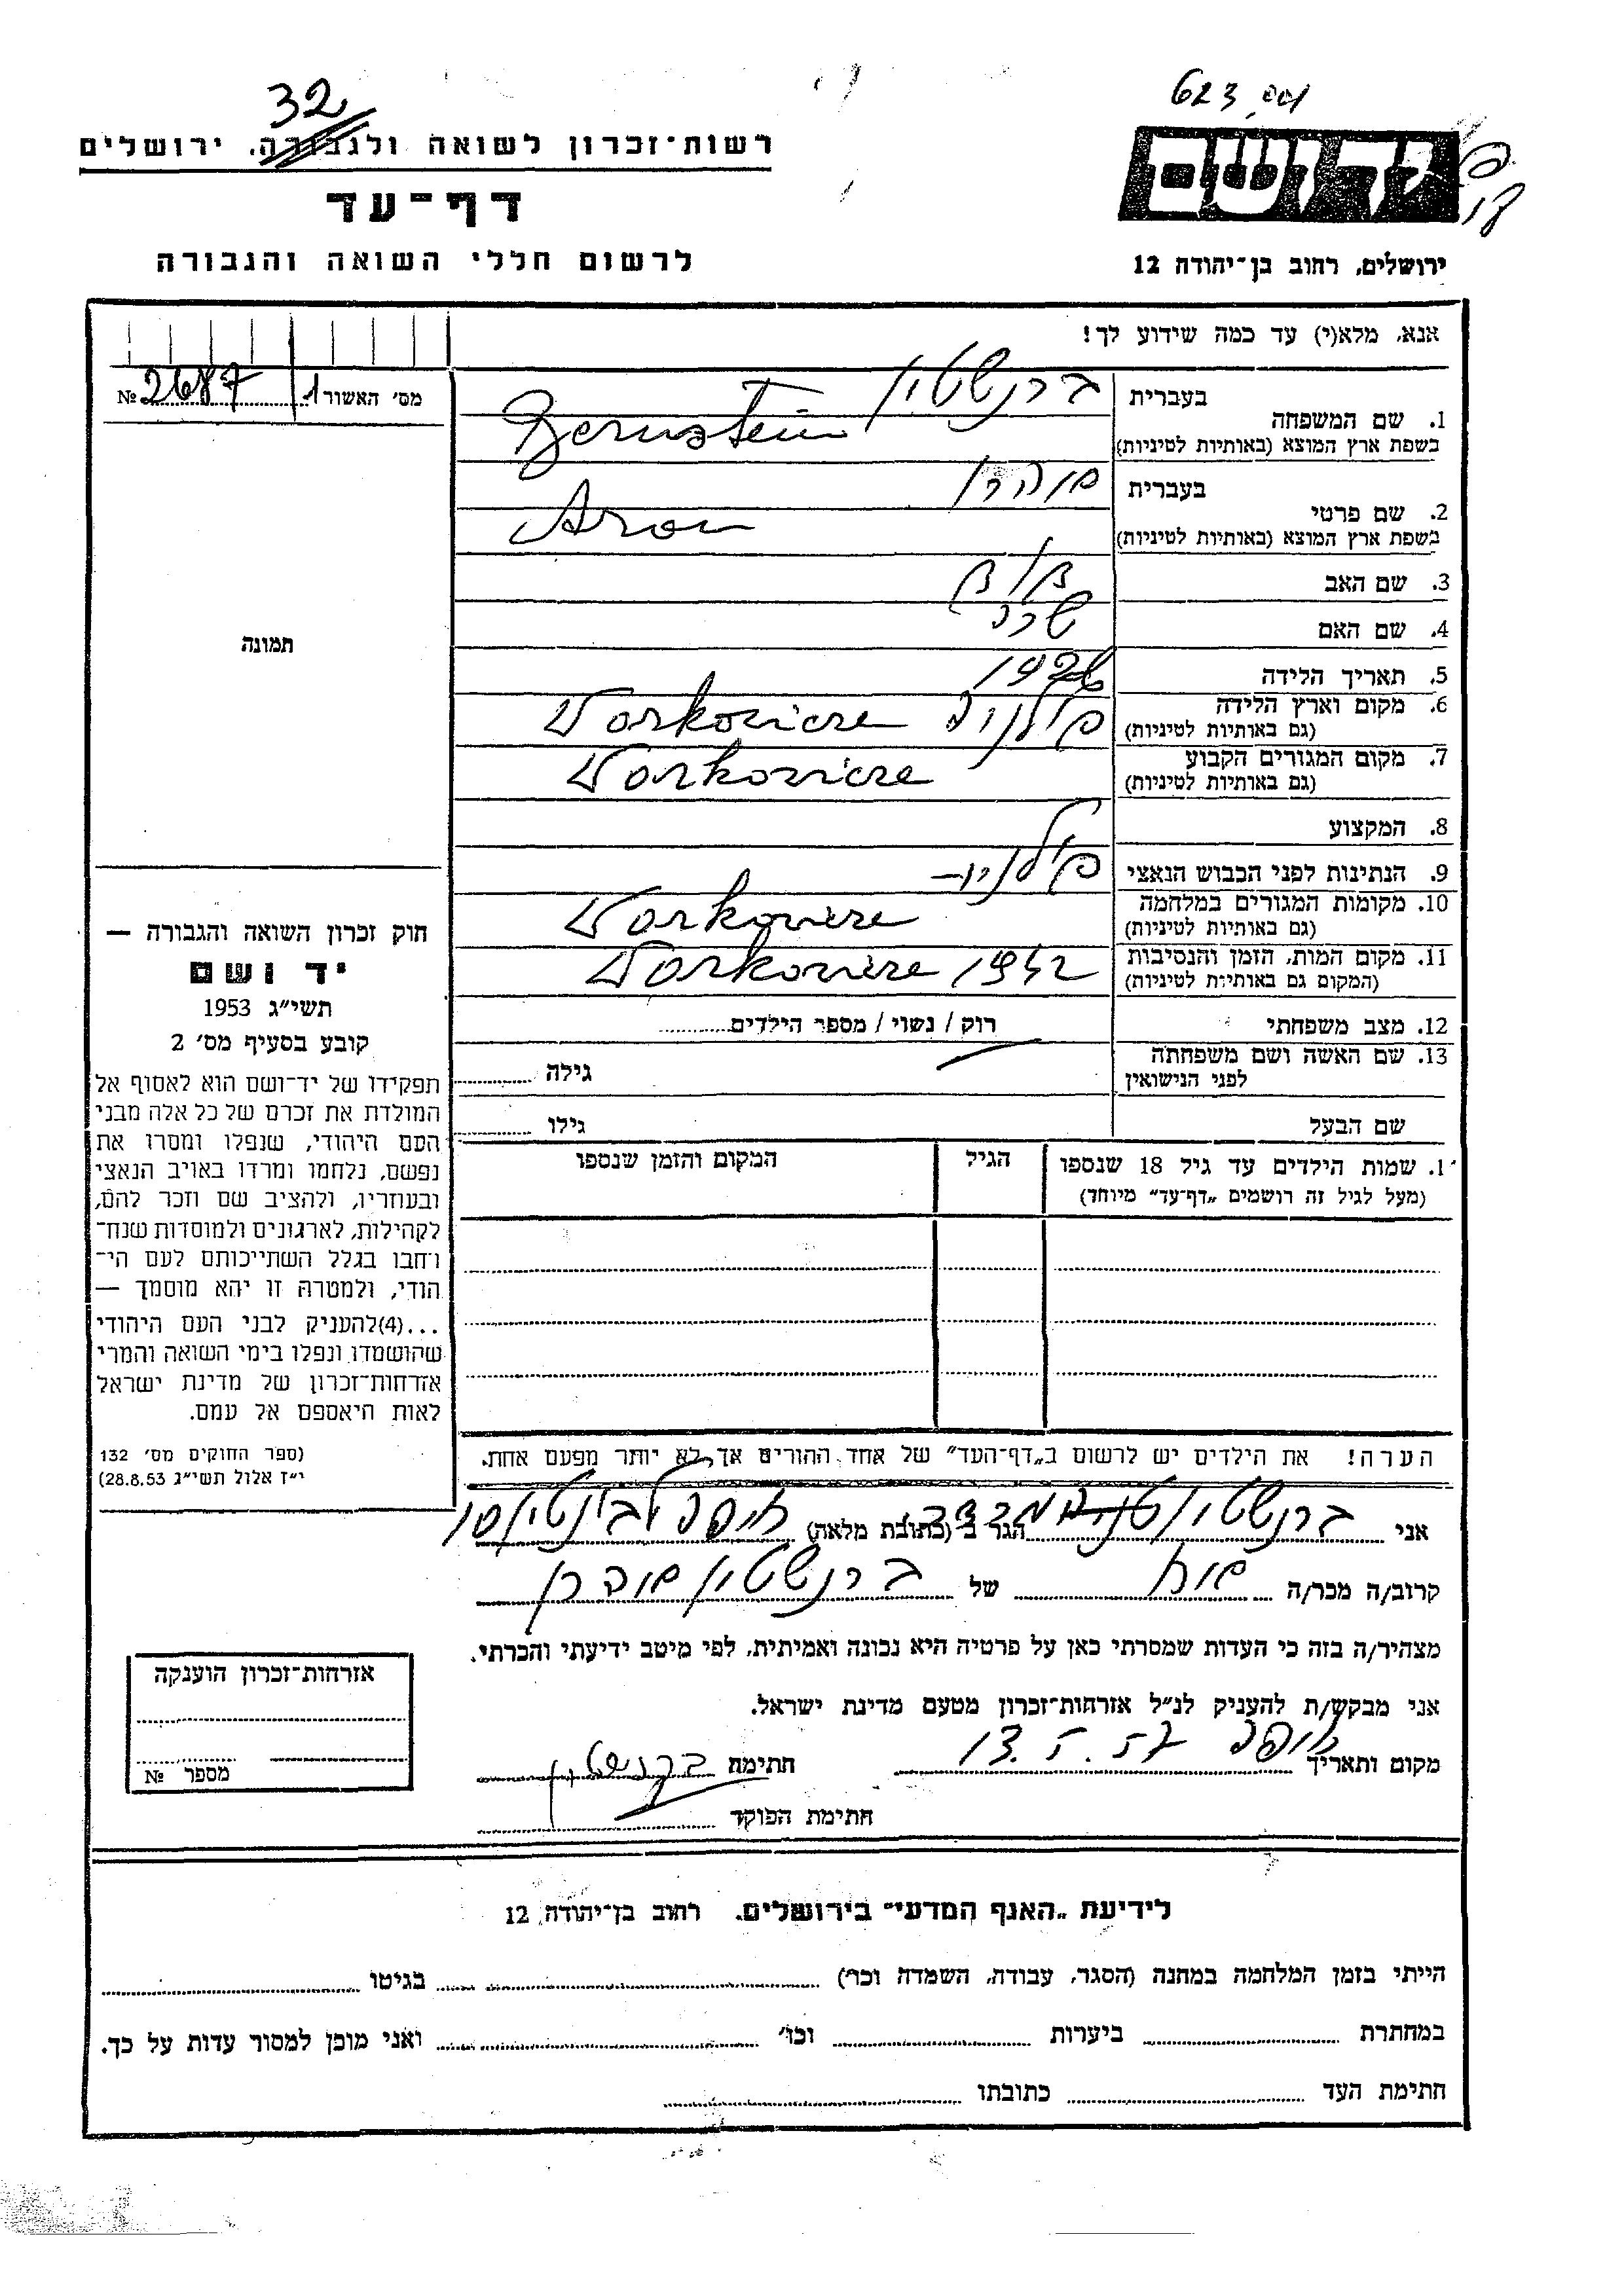 32
623
רשות־זכרון לשואה ולגבורה, ירושלים
יד ושם
דף־עד
לרשום חללי השואה והגבורה
ירושלים, רחוב בן־יהודה 12
אנא, מלא(י) עד כמה שידוע לך!
מס׳ האשור 1 № 2687
1. שם המשפחה בעברית ברנשטין
בשפת ארץ המוצא (באותיות לטיניות) Bernstein
2. שם פרטי בעברית אהרן
בשפת ארץ המוצא (באותיות לטיניות) Aron
3. שם האב
4. שם האם שרה
תמונה
5. תאריך הלידה
6. מקום וארץ הלידה
(גם באותיות לטיניות) פולניה Workowicze
7. מקום המגורים הקבוע
(גם באותיות לטיניות) Workowicze
8. המקצוע
9. הנתינות לפני הכבוש הנאצי
10. מקומות המגורים במלחמה
(גם באותיות לטיניות)
11. מקום המות, הזמן והנסיבות
(המקום גם באותיות לטיניות) 1942
12. מצב משפחתי רוק / נשוי / מספר הילדים
13. שם האשה ושם משפחתה
לפני הנישואין גילה
שם הבעל גילו
1. שמות הילדים עד גיל 18 שנספו
(מעל לגיל זה רושמים „דף־עד״ מיוחד)
הגיל
המקום והזמן שנספו
חוק זכרון השואה והגבורה —
יד ושם
תשי״ג 1953
קובע בסעיף מס׳ 2
תפקידו של יד־ושם הוא לאסוף אל
המולדת את זכרם של כל אלה מבני
העם היהודי, שנפלו ומסרו את
נפשם, נלחמו ומרדו באויב הנאצי
ובעוזריו, ולהציב שם וזכר להם,
לקהילות, לארגונים ולמוסדות שנח־
רחבו בגלל השתייכותם לעם הי־
הודי, ולמטרה זו יהא מוסמך —
...(4)להעניק לבני העם היהודי
שהושמדו ונפלו בימי השואה והמרי
אזרחות־זכרון של מדינת ישראל
לאות היאספם אל עמם.
(ספר החוקים מס׳ 132
י״ז אלול תשי״ג 28.8.53)
הערה! את הילדים יש לרשום ב„דף־העד״ של אחד ההורים אך לא יותר מפעם אחת.
אני ברנשטין הגר ב (כתובת מלאה) חיפה
קרוב/ה מכר/ה אח של ברנשטין אהרן
מצהיר/ה בזה כי העדות שמסרתי כאן על פרטיה היא נכונה ואמיתית, לפי מיטב ידיעתי והכרתי.
אני מבקש/ת להעניק לנ״ל אזרחות־זכרון מטעם מדינת ישראל.
מקום ותאריך חיפה 13.5.57 חתימת ברנשטין
חתימת הפוקד
אזרחות־זכרון הוענקה
מספר №
לידיעת „האנף המדעי״ בירושלים, רחוב בן־יהודה 12
הייתי בזמן המלחמה במחנה (הסגר, עבודה, השמדה וכו׳) בגיטו
במחתרת ביערות וכו׳ ואני מוכן למסור עדות על כך.
חתימת העד כתובתו